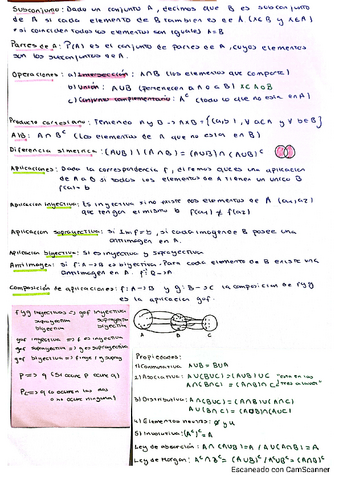 Subconjunto: Dado un conjunto A, decimos que B es subconjunto
de A si cada elemento de B tambien es de A
si coinciden todos los elementos son iguales A=B
Partes de A: P(A) es el conjunto de partes de A, cuyos elementos
son los subconjuntos de A.
Operaciones: a) Intersección: A∩B (los elementos que comparte)
b) Unión: A∪B (pertenecen a A o a B)
c) Conjunto complementario: Aᶜ (todo lo que no esta en A)
Producto cartesiano: Tenemos A y B -> A×B = {(a,b), ∀ a∈A y ∀ b∈B}
A\B: A∩Bᶜ (Los elementos de A que no esta en B)
Diferencia simetrica: (A∪B)\(A∩B) = (A∪B)∩(A∩B)ᶜ
Aplicaciones: Dada la correspondencia f, diremos que es una aplicacion
de A a B si todos los elementos de A tienen un unico B
f(a)=b
Aplicacion inyectiva: Es inyectiva si no existe dos elementos de A (a1,a2)
que tengan el mismo b f(a1) ≠ f(a2)
Aplicacion suprayectiva: si Imf=b, si cada imagen de B posee una
antimagen en A.
Aplicacion biyectiva: si es inyectiva y suprayectiva
Antimagen: si f:A->B es biyectiva. Para cada elemento de B existe una
antimagen en A. f:B->A
Composición de aplicaciones: f:A->B y g:B->C la composicion de f y g
es la aplicacion gof.
f y g inyectivas => gof inyectiva
suprayectiva suprayectiva
biyectiva biyectiva
gof inyectiva => f es inyectiva
gof suprayectiva => g es suprayectiva
gof biyectiva => f inye y g supray
P=>q (si ocurre p ocurre q)
P<=>q (o ocurren las dos
o no ocurre ninguna)
A
B
C
Propiedades:
1) Conmutativa: A∪B = B∪A
2) Asociativa: A∪(B∪C) = (A∪B)∪C
A∩(B∩C) = (A∩B)∩C
3) Distributiva: A∩(B∪C) = (A∩B)∪(A∩C)
A∪(B∩C) = (A∪B)∩(A∪C)
4) Elementos neutros: Ø y U
5) Involutiva: (Aᶜ)ᶜ = A
Ley de absorción: A∩(A∪B) = A / A∪(A∩B) = A
Ley de Morgan: Aᶜ∩Bᶜ = (A∪B)ᶜ / Aᶜ∪Bᶜ = (A∩B)ᶜ
Escaneado con CamScanner